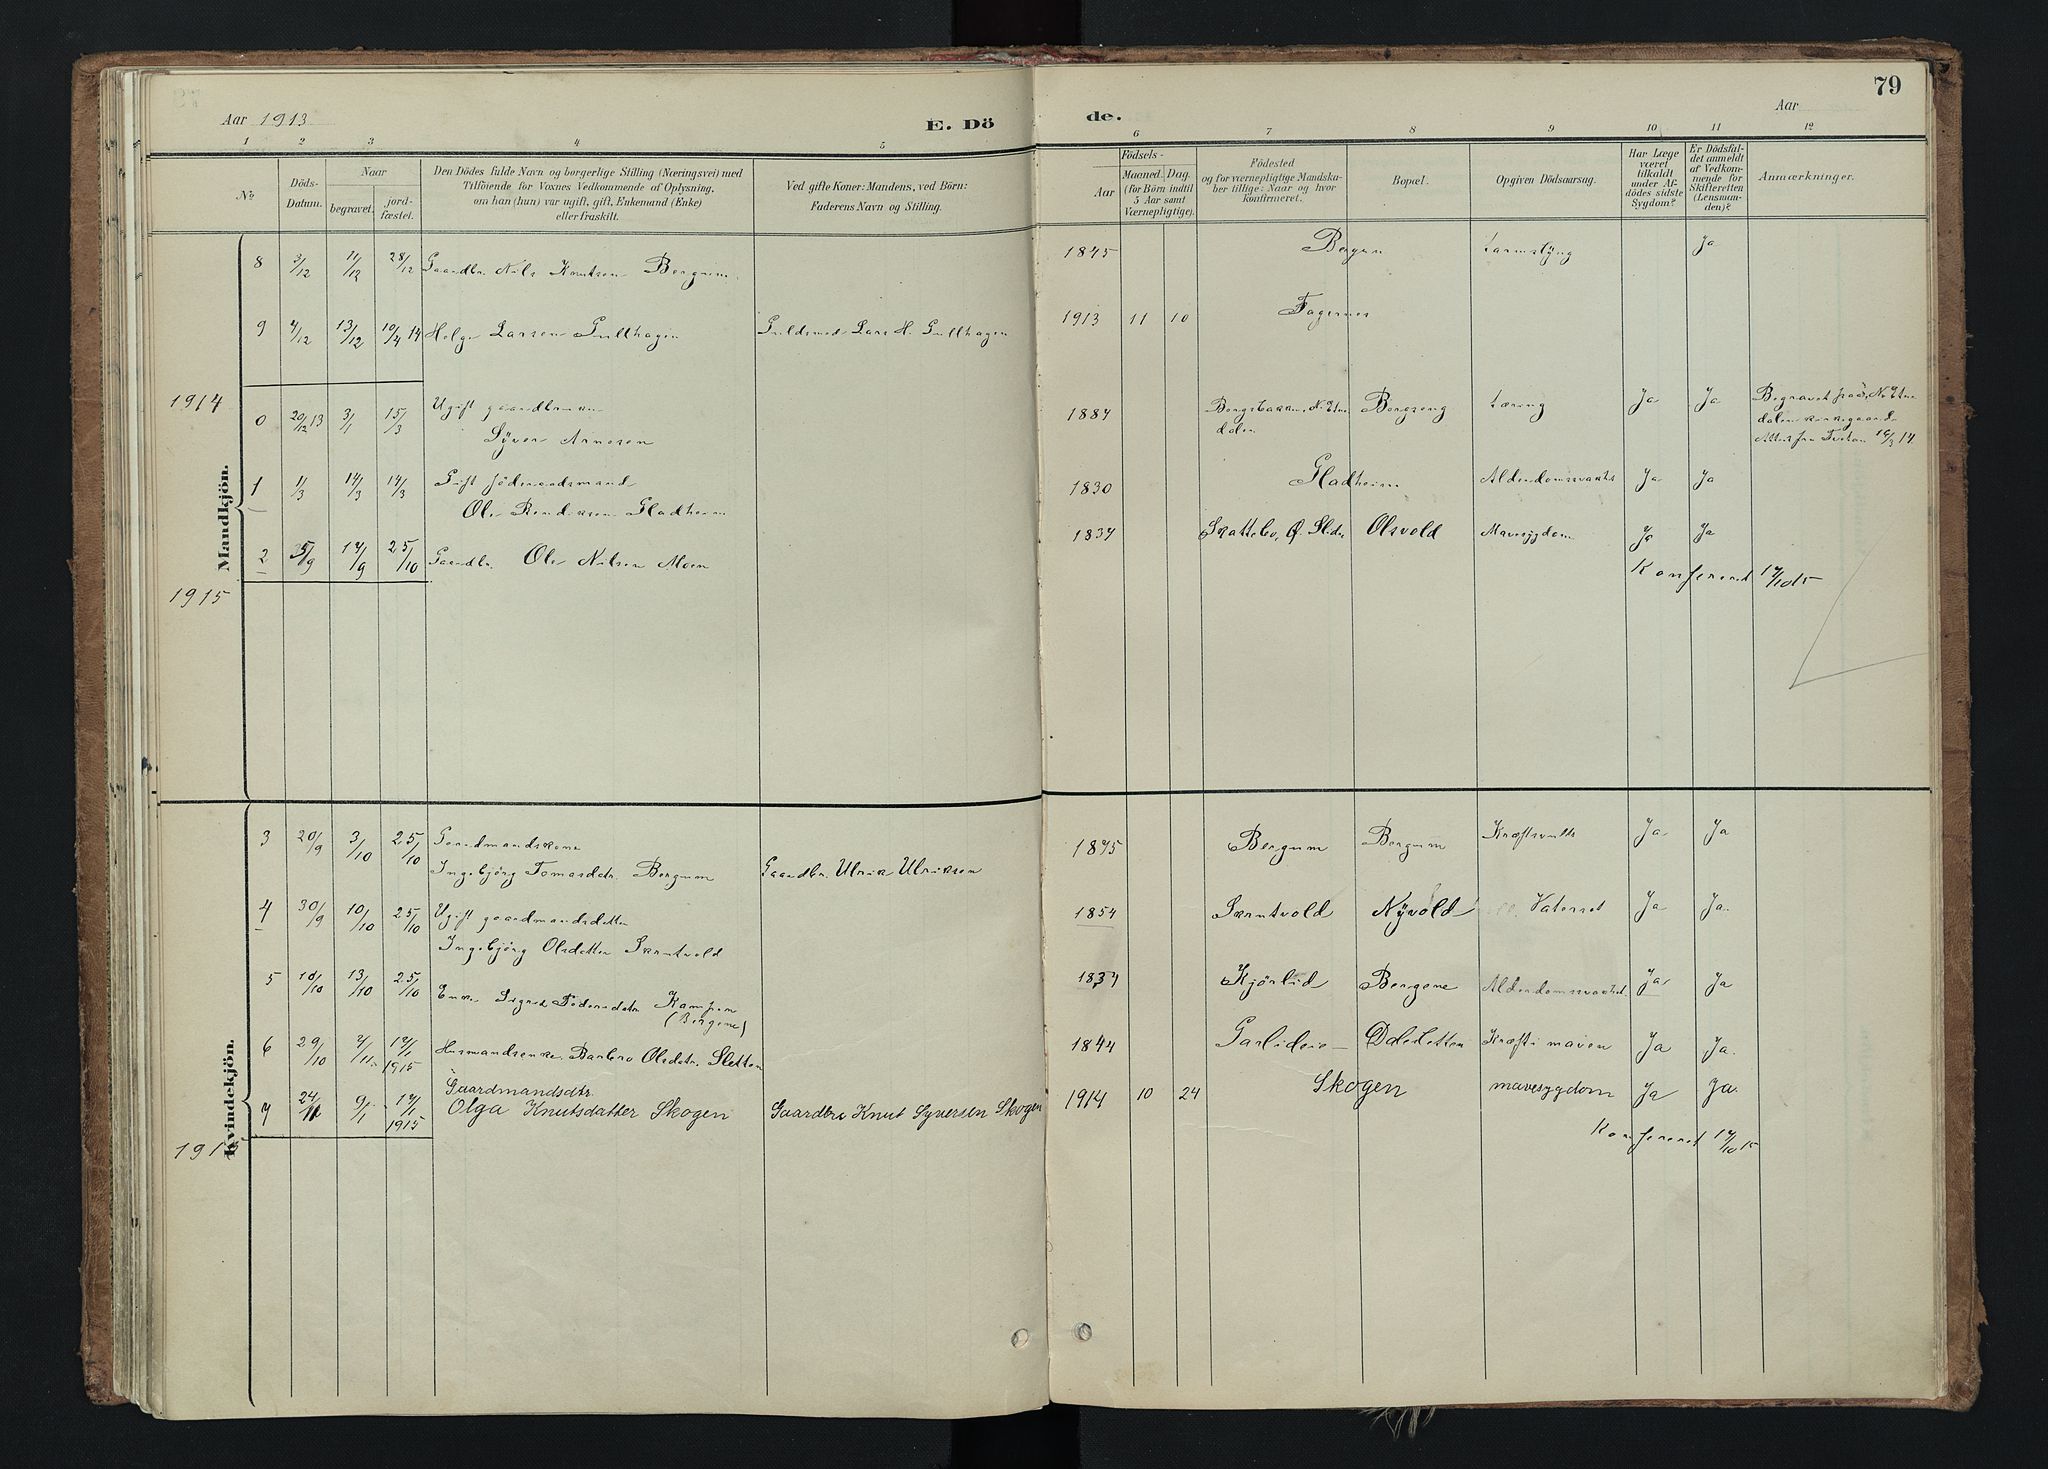 79
Aar 1913
E. Dö
de.
Aar
1 2 3 4 5 6 7 8 9 10 11 12
No
Döds-Datum.
Naar
begravet.
jord-fæstet.
Den Dödes fulde Navn og borgerlige Stilling (Næringsvei) med
Tilföiende for Voxnes Vedkommende af Oplysning,
om han (hun) var ugift, gift, Enkemand (Enke)
eller fraskilt.
Ved gifte Koner: Mandens, ved Börn:
Faderens Navn og Stilling.
Födsels-
Aar
Maaned. Dag.
(for Börn indtil
5 Aar samt
Værnepligtige).
Födested
og for værnepligtige Mandska-
ber tillige: Naar og hvor
konfirmeret.
Bopæl.
Opgiven Dödsaarsag.
Har Læge
været
tilkaldt
under Af-
dödes sidste
Sygdom?
Er Dödsfal-
det anmeldt
af Vedkom-
mende for
Skifteretten
(Lensman-
den)?
Anmærkninger.
Mandkjön.
8 3/12 11/12 28/12 Gaardbr. Nils Knutsen Bergum 1845 Ja
9 4/12 13/12 10/4 14 Helge Larsen Gullhagen Guldsmed Lars H. Gullhagen 1913 11 10 Fagernes
1914
0 20/12 13 3/1 15/3 Ugift gaardbruker
Syver Arnesen
1884 Tæring Ja Ja
1 1/3 14/3 14/3 Gift föderaadsmand
Ole Gladheim
1830 Gladheim Alderdomssvakhet Ja Ja
2 5/9 17/9 25/10 Gaardbr. Ole Nilsen Moen 1837 Skattebo, Ø. Slidre Olsvold Mavesygdom Ja Ja
Konfereret 17/10 15
1915
Kvindekjön.
3 20/9 3/10 25/10 Gaardmandskone
Ingebjörg Tomasdtr. Bergum Gaardbr. Ulrik Ulriksen
1875 Bergum Bergum Ja Ja
4 30/9 10/10 25/10 Ugift gaardmandsdatter
Ingebjörg Olsdatter Skrutvold
1854 Skrutvold Nÿvold Vatersot Ja Ja.
5 10/10 13/10 25/10 Enke Sigrid Kampen
(Bergene)
1834 Kjörlid Bergene Alderdomssvakhet Ja Ja
6 29/10 7/11 17/1 1915 Husmandsenke Barbro Olsdatr. Sletten 1844 Garlideie Dalsletten Kræft i maven Ja Ja.
7 24/11 9/1 17/1 1915 Gaardmandsdtr.
Olga Knutsdatter Skogen Gaardbr. Knut Syversen Skogen
1914 10 24 Skogen mavesygdom Ja Ja.
Konfereret 17/10 15
1915